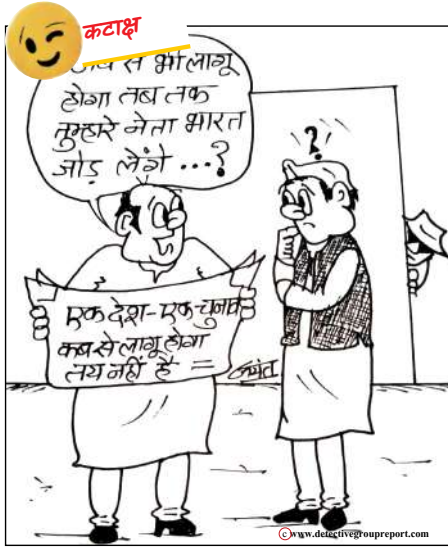 कटाक्ष
से भी लागू
होगा तब तक
तुम्हारे नेता भारत
जोड़ लेंगे ...?
?
एक देश-एक चुनाव
कब से लागू होगा
तय नहीं है =
जयंत
c www.detectivegroupreport.com